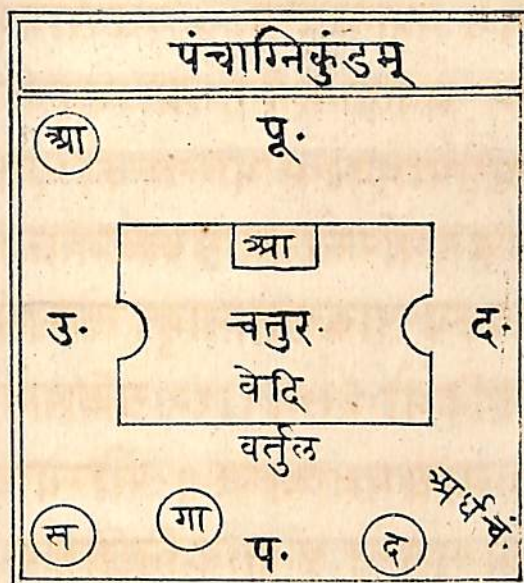 पंचाग्निकुंडम्
आ
पू.
आ
उ.
चतुर.
द.
वेदि
वर्तुल
अर्धचं.
स
गा
प.
द